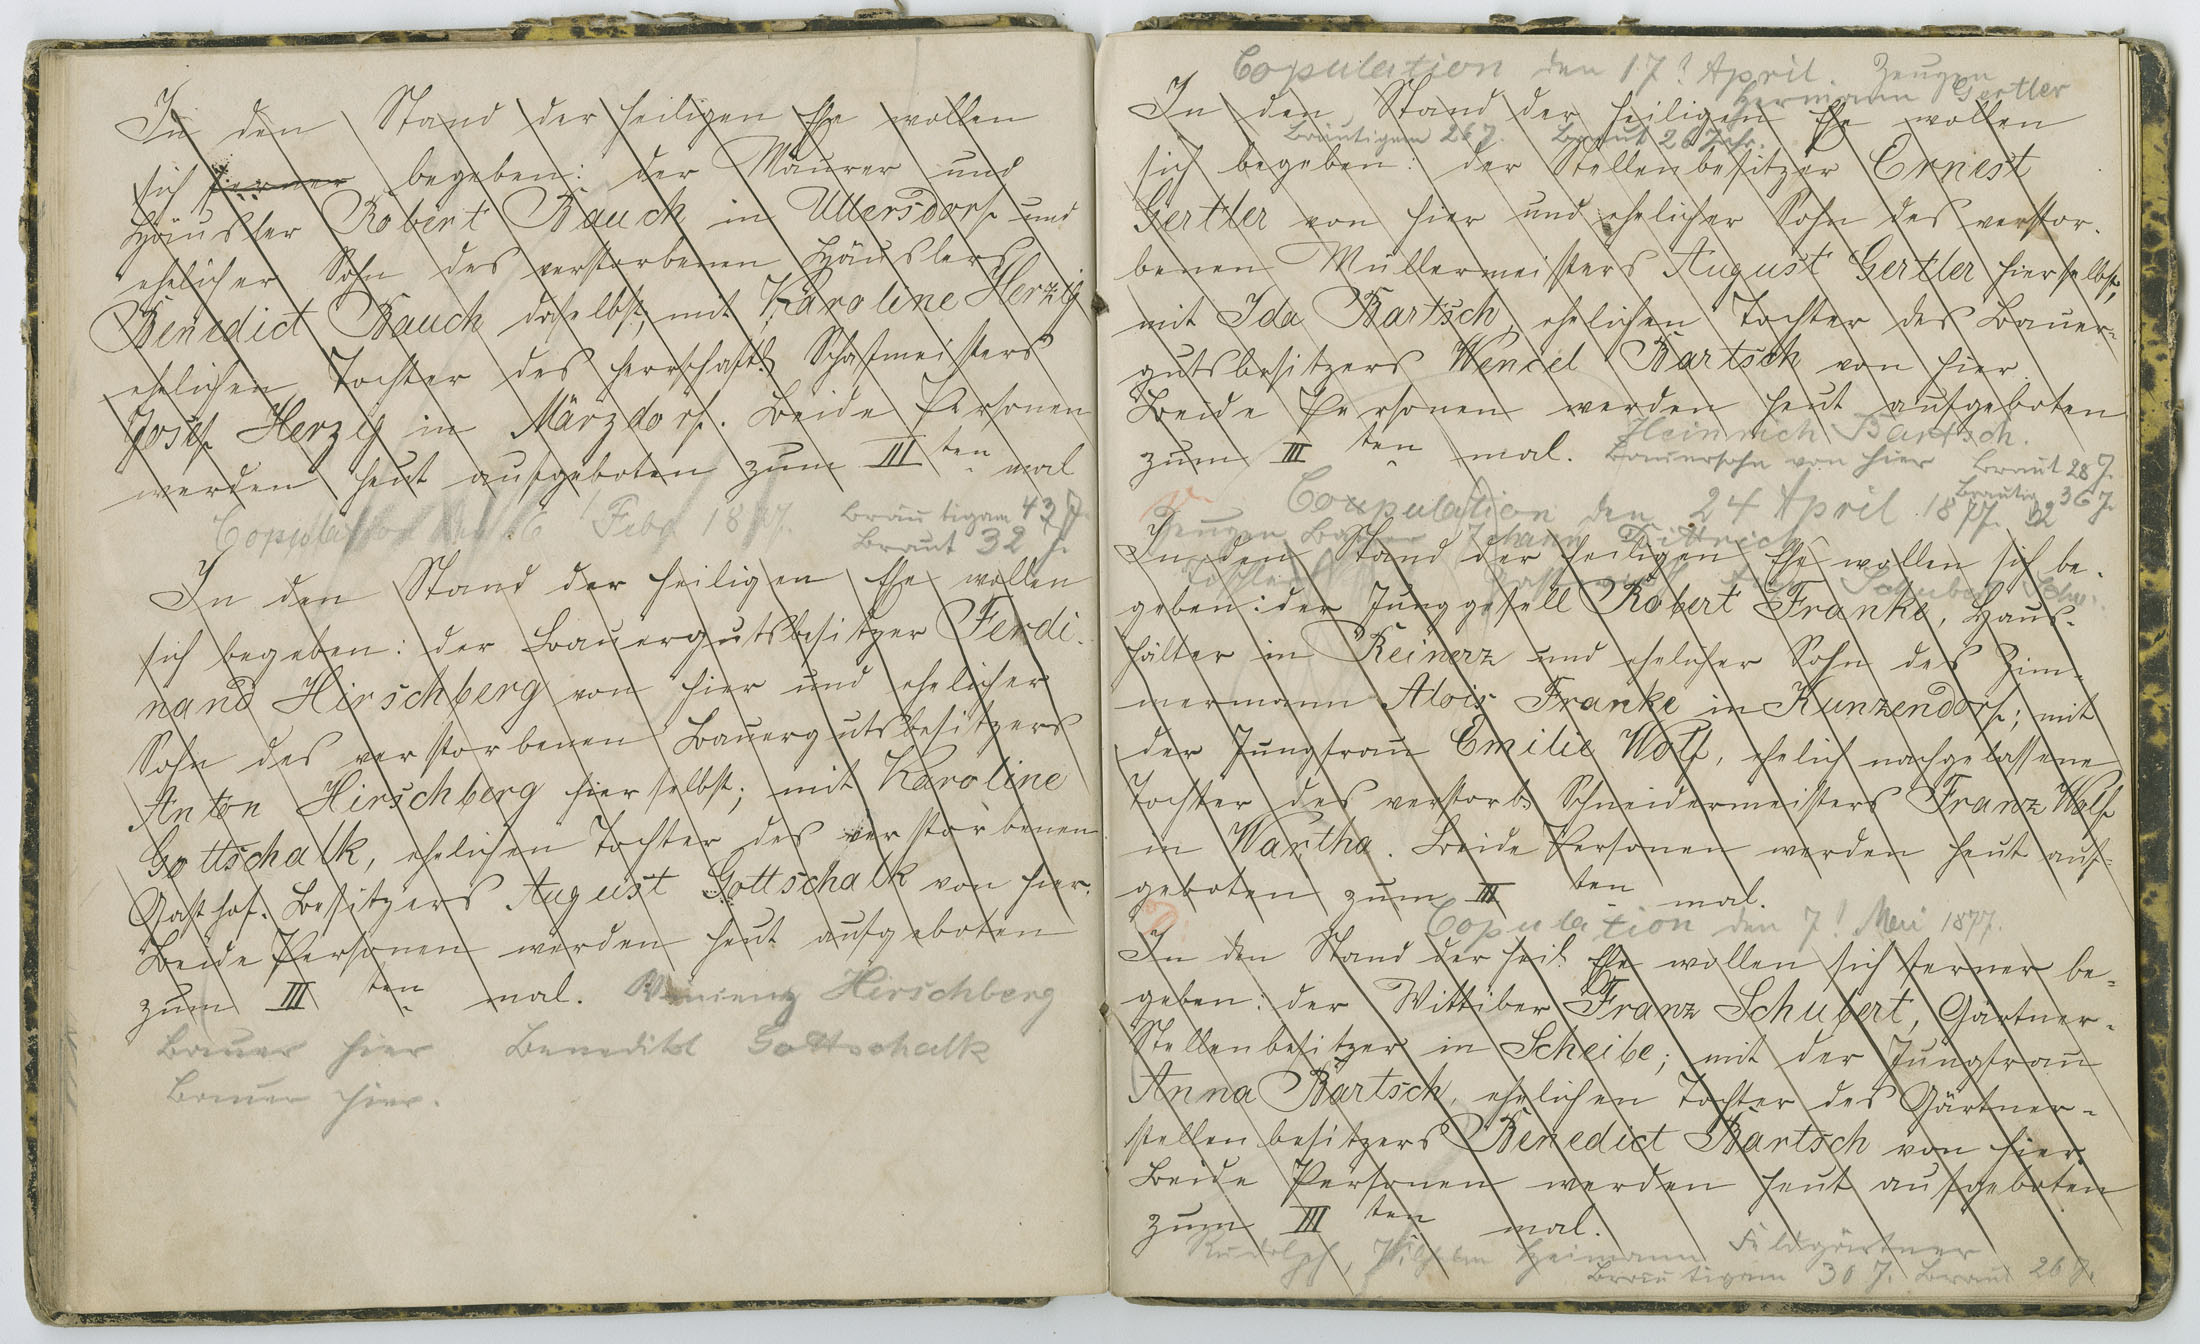 In den Stand der heiligen Ehe wollen
sich ferner begeben: der Maurer und
Häusler Robert Rauch in Ullersdorf und
ehelicher Sohn des verstorbenen Häuslers
Benedict Rauch daselbst; mit Karoline Herzig
ehelichen Tochter des herrschaftl. Schafmeisters
Josef Herzig in Märzdorf. Beide Personen
werden heut aufgeboten zum III ten mal
Copulation den 6 Febr. 1877. Bräutigam 43 J.
Braut 32 J.
In den Stand der heiligen Ehe wollen
sich begeben: der Bauergutsbesitzer Ferdi-
nand Hirschberg von hier und ehelicher
Sohn des verstorbenen Bauergutsbesitzers
Anton Hirschberg hierselbst; mit Karoline
Gottschalk, ehelichen Tochter des verstorbenen
Gasthof-Besitzers August Gottschalk von hier.
Beide Personen werden heut aufgeboten
zum III ten mal. Hirschberg
Bauer hier Benedikt Gottschalk
Bauer hier.
Copulation den 17! April. Zeugen
Hermann Gertler
In den Stand der heiligen Ehe wollen
Bräutigam 26 J. Braut 26 Jahr.
sich begeben: der Stellenbesitzer Ernest
Gertler von hier und ehelicher Sohn des verstor-
benen Müllermeisters August Gertler hierselbst;
mit Ida Bartsch, ehelichen Tochter des Bauer-
gutsbesitzers Wencel Bartsch von hier.
Beide Personen werden heut aufgeboten
zum III ten mal. Heinrich Bartsch.
Bauersohn von hier Braut 28 J.
Bräutig 36 J.
Copulation den 24 April 1877.
Zeugen Bauer Johann Dittrich
In den Stand der heiligen Ehe wollen sich be-
Schubert
geben: der Junggesell Robert Franke, Haus-
hälter in Reinerz und ehelicher Sohn des Zim-
mermann Alois Franke in Kunzendorf; mit
der Jungfrau Emilie Wolf, ehelich nachgelassene
Tochter des verstorb. Schneidermeisters Franz Wolf
in Wartha. Beide Personen werden heut auf-
geboten zum III ten mal.
Copulation den 7! Mai 1877.
In den Stand der heil. Ehe wollen sich ferner be-
geben: der Wittiber Franz Schubert, Gärtner-
Stellenbesitzer in Scheibe; mit der Jungfrau
Anna Bartsch, ehelichen Tochter des Gärtner-
stellenbesitzers Benedict Bartsch von hier.
Beide Personen werden heut aufgeboten
zum III ten mal.
Rudolph, Wilhelm Heimann Feldgärtner
Bräutigam 30 J. Braut 26 J.